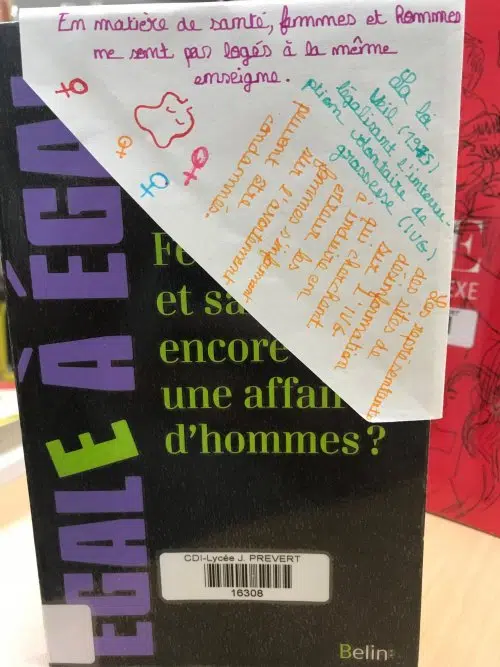 En matière de santé, femmes et Hommes
ne sont pas logés à la même
enseigne.
La loi
Veil (1975)
légalisant l'interru-
ption volontaire de
grossesse (IVG)
Les représentants
des sites de
désinformation
sur l'IVG
qui cherchent
à induire en
erreur les
femmes s'informant
sur l'avortement
peuvent être
condamnés.
EGALE À ÉGAL
Fe
et sa
encore
une affai
d'hommes ?
CDI-Lycée J. PREVERT
16308
Belin
E
EXE